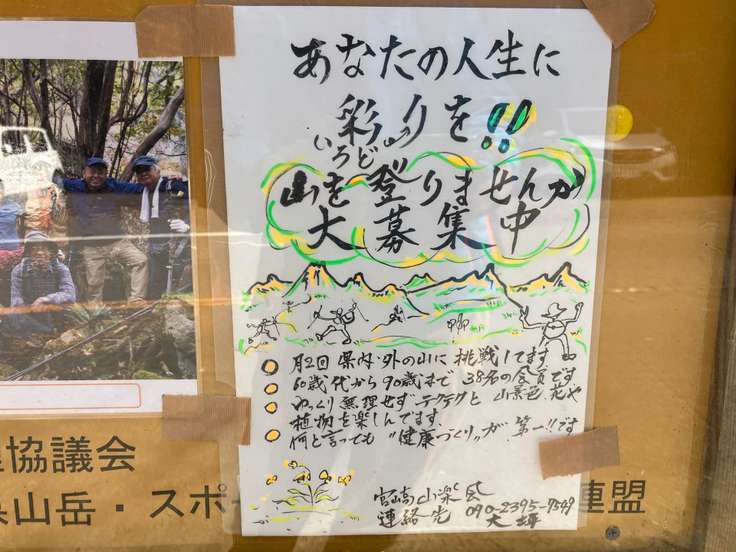 あなたの人生に
彩りを!!
いろど
山を登りませんか
大募集中
月2回 県内・外の山に挑戦してます
60歳代から90歳まで 38名の会員です
ゆっくり無理せず テクテクと 山景色 花や
植物を楽しんでます
何と言っても "健康づくり"が 第一!!です
宮崎山楽会
連絡先 090-2395-7549
大坪
協議会
山岳・スポ
連盟